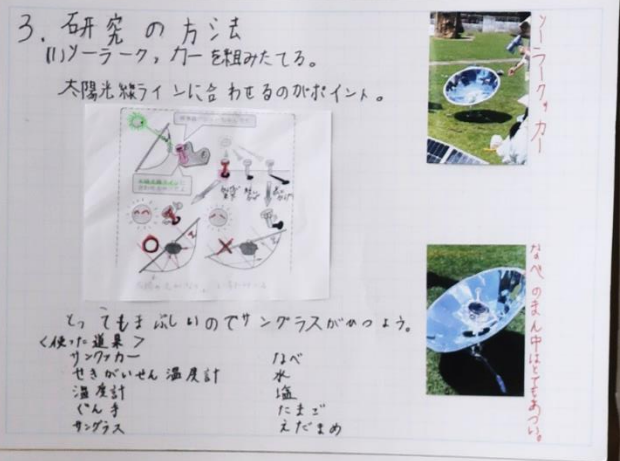 3. 研究の方法
(1)ソーラークッカーを組みたてる。
太陽光線ラインに合わせるのがポイント。
とってもまぶしいのでサングラスがひつよう。
<使った道具>
サンクッカー
せきがいせん温度計
温度計
ぐん手
サングラス
なべ
水
塩
たまご
えだまめ
ソーラークッカー
なべのまん中はとてもあつい。